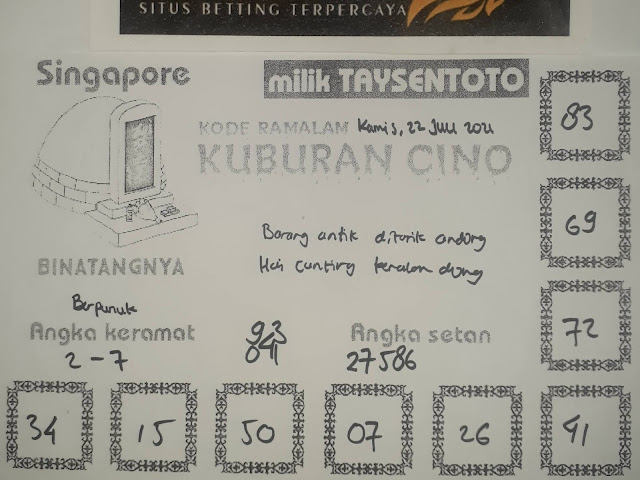 SITUS BETTING TERPERCAYA
Singapore
milik TAYSENTOTO
KODE RAMALAM Kamis, 22 Juli 2021
KUBURAN CINO
83
69
72
Barang antik ditarik andong
Hai cunting
BINATANGNYA
Berpunuk
Angka keramat
2 - 7
93
041
Angka setan
27586
34
15
50
07
26
91